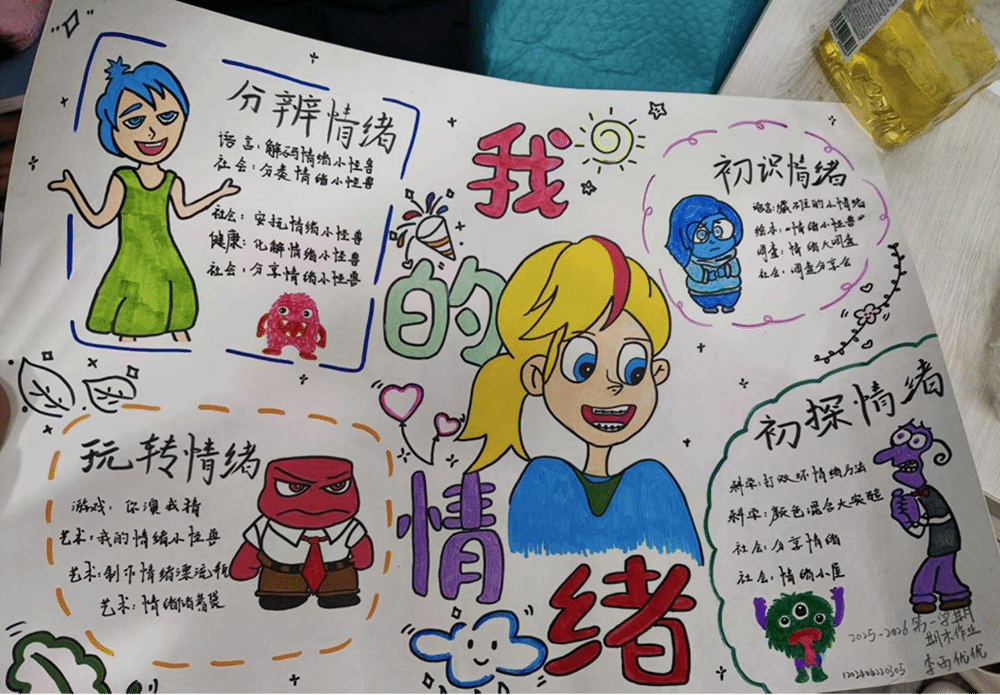 分辨情绪
语言:解码情绪小怪兽
社会:分类情绪小怪兽
社会:安抚情绪小怪兽
健康:化解情绪小怪兽
社会:分享情绪小怪兽
我的情绪
初识情绪
语言:藏在的小情绪
绘本:“情绪小怪兽”
调查:情绪大调查
社会:调查分享会
玩转情绪
游戏:你演我猜
艺术:我的情绪小怪兽
艺术:制作情绪漂流瓶
艺术:情绪
初探情绪
科学:打败坏情绪方法
科学:颜色混合大实验
社会:分享情绪
社会:情绪小屋
2025-2026第一学期
期末作业
李雨优优